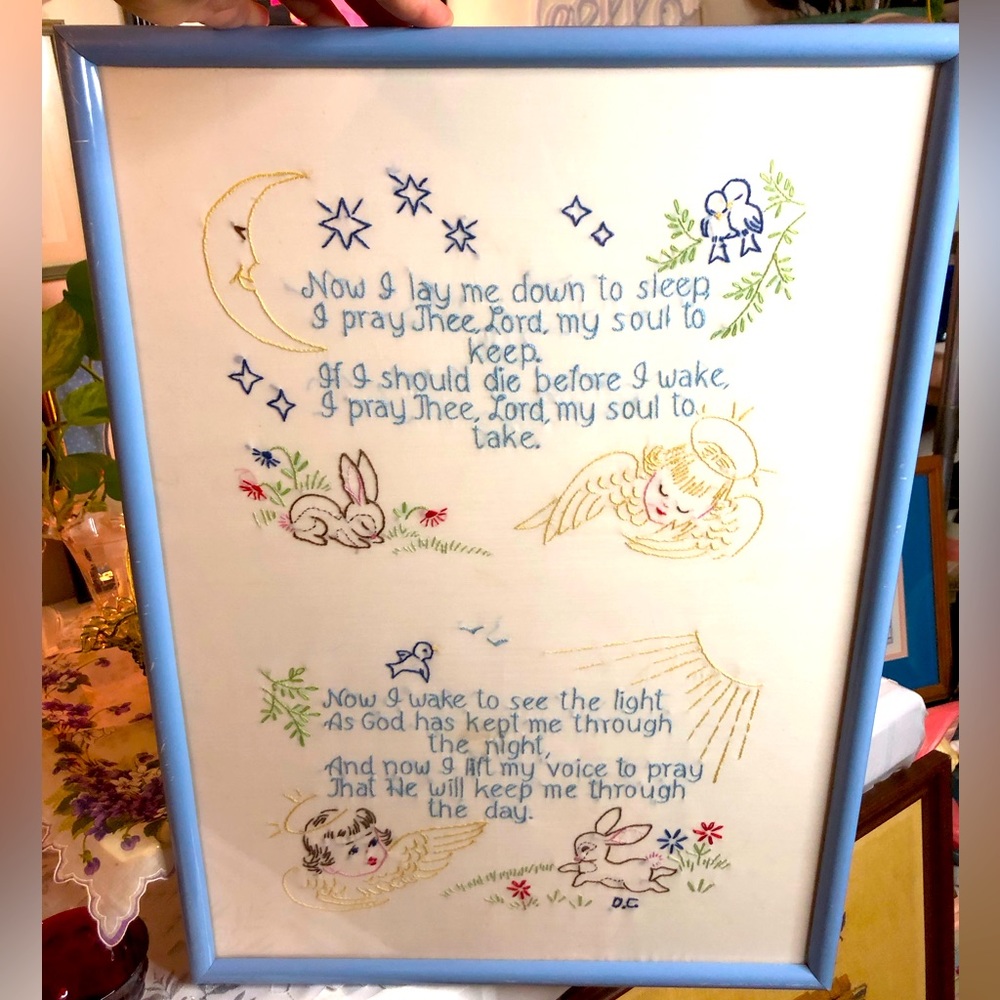 Now I lay me down to sleep,
I pray Thee, Lord, my soul to
keep.
If I should die before I wake,
I pray Thee, Lord, my soul to
take.
Now I wake to see the light
As God has kept me through
the night,
And now I lift my voice to pray
That He will keep me through
the day.
D.C